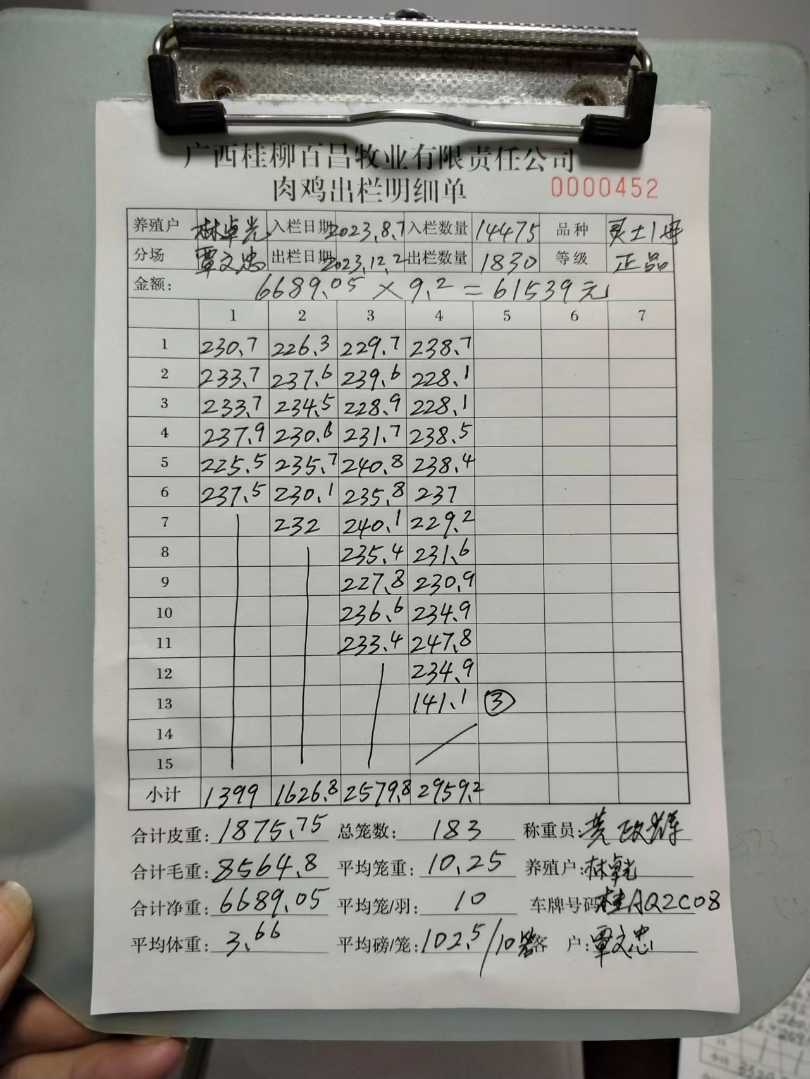 广西桂柳百昌牧业有限责任公司
肉鸡出栏明细单 0000452
养殖户 林卓光 入栏日期 2023.8.7 入栏数量 14475 品种
分场 覃文忠 出栏日期 2023.12.2 出栏数量 1830 等级 正品
金额: 6689.05 × 9.2 = 61539元
1 2 3 4 5 6 7
1 230.7 226.3 229.7 238.7
2 233.7 237.6 239.6 228.1
3 233.7 234.5 228.9 228.1
4 237.9 230.6 231.7 238.5
5 225.5 235.7 240.8 238.4
6 237.5 230.1 235.8 237
7 232 240.1 229.2
8 235.4 231.6
9 227.8 230.9
10 236.6 234.9
11 233.4 247.8
12 234.9
13 141.1 ③
14
15
小计 1399 1626.8 2579.8 2959.2
合计皮重: 1875.75 总笼数: 183 称重员:
合计毛重: 8564.8 平均笼重: 10.25 养殖户: 林卓光
合计净重: 6689.05 平均笼/羽: 10 车牌号码 桂AQ2C08
平均体重: 3.66 平均磅/笼: 102.5/10 客 户: 覃文忠